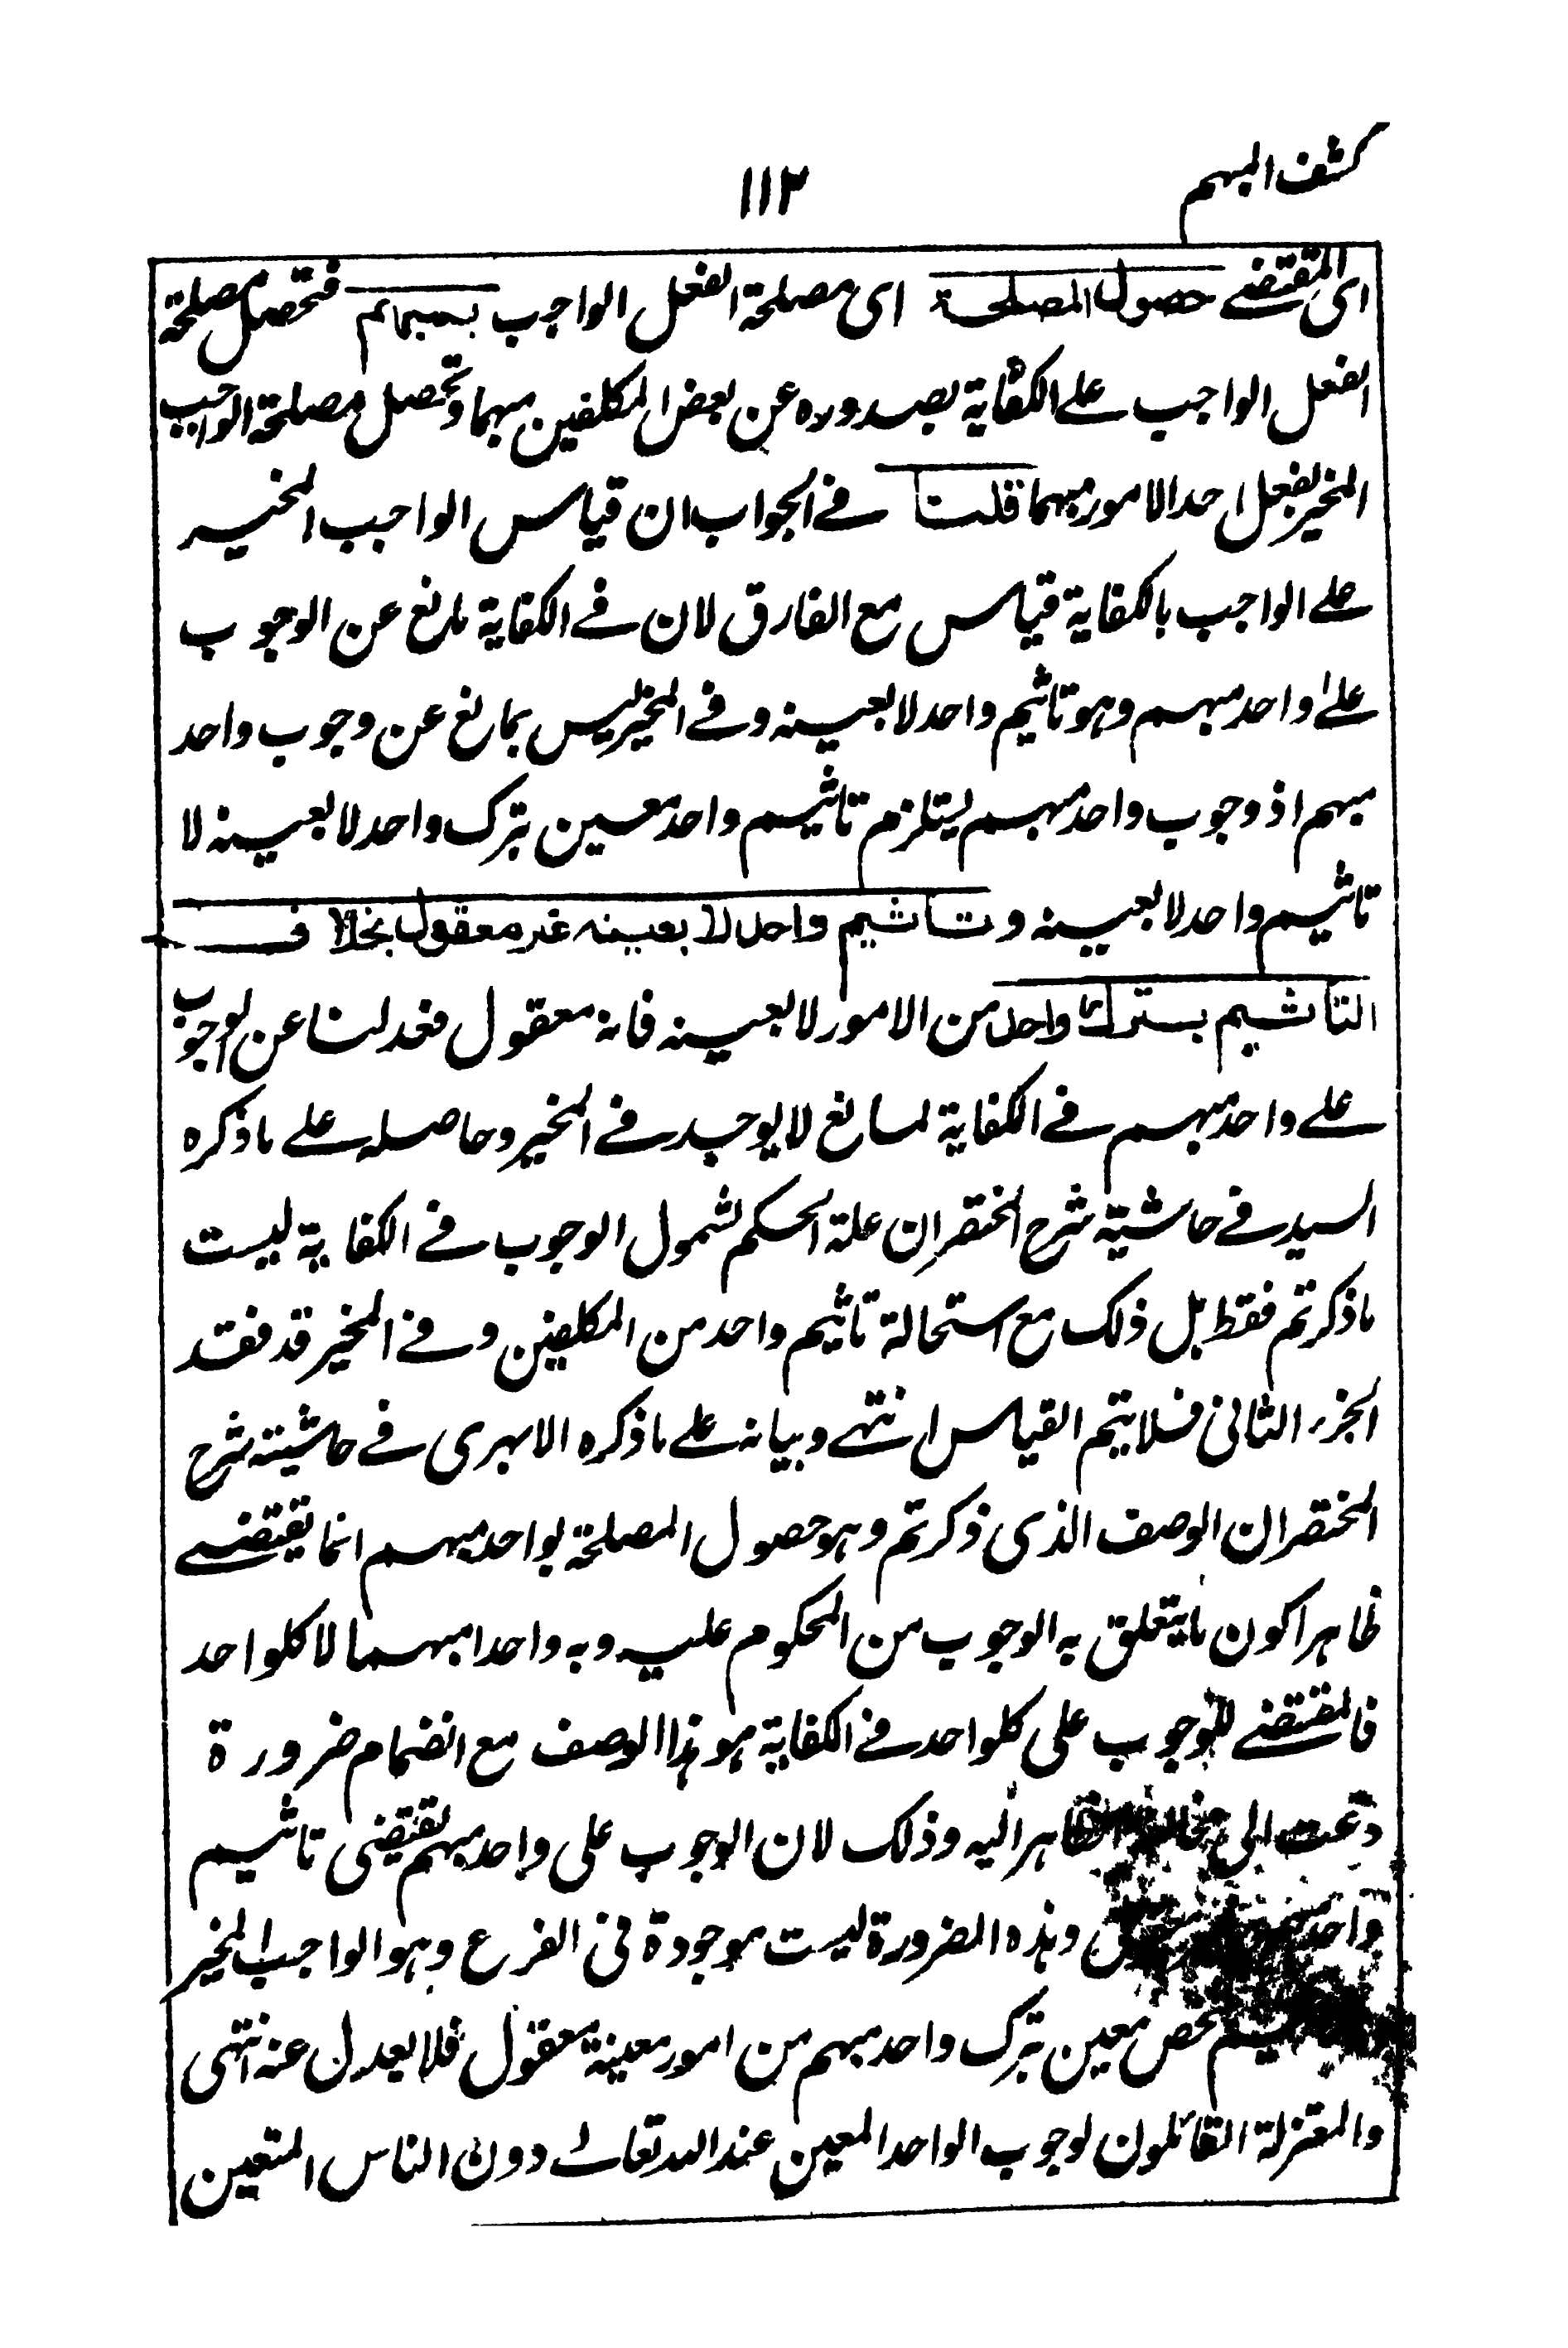 كشف المبهم
١١٢
اى المقتضے حصول المصلحة اى مصلحة الفعل الواجب بمبهم فتحصل مصلحة
الفعل الواجب علے الكفاية بصدوره عن بعض المكلفين مبهما وتحصل مصلحة الواجب
المخير بفعل احد الامور مبهما قلنا فے الجواب ان قياس الواجب المخير
علے الواجب بالكفاية قياس مع الفارق لان فے الكفاية مانع عن الوجوب
علے واحد مبهم وهو تاثيم واحد لا بعينه وفے المخير ليس بمانع عن وجوب واحد
مبهم اذ وجوب واحد مبهم يستلزم تاثيم واحد معين بترك واحد لا بعينه لا
تاثيم واحد لا بعينه وتاثيم واحد لا بعينه غير معقول بخلاف
التاثيم بترك واحد من الامور لا بعينه فانه معقول فعدلنا عن الوجوب
علے واحد مبهم فے الكفاية لمانع لا يوجد فے المخير وحاصله علے ما ذكره
السيد فے حاشية شرح المختصر ان علة الحكم لشمول الوجوب فے الكفاية ليست
ما ذكرتم فقط بل ذلك مع استحالة تاثيم واحد من المكلفين وفے المخير قد فقد
الجزء الثانى فلا يتم القياس انتهے وبيانه علے ما ذكره الابهرى فے حاشية شرح
المختصر ان الوصف الذى ذكرتم وهو حصول المصلحة بواحد مبهم انما يقتضے
ظاهرا كون ما يتعلق به الوجوب من المحكوم عليه وبه واحدا مبهما لا كلواحد
فالمقتضے للوجوب على كلواحد فے الكفاية هو هذا الوصف مع انضمام ضرورة
دعت الى الظاهر اليه وذلك لان الوجوب على واحد مبهم يقتضى تاثيم
واحد وهذه الضرورة ليست موجودة فى الفرع وهو الواجب المخير
معين بترك واحد مبهم من امور معينة معقول فلا يعدل عنه انتهى
والمعتزلة القائلون لوجوب الواحد المعين عند الله تعالى دون الناس المتعين